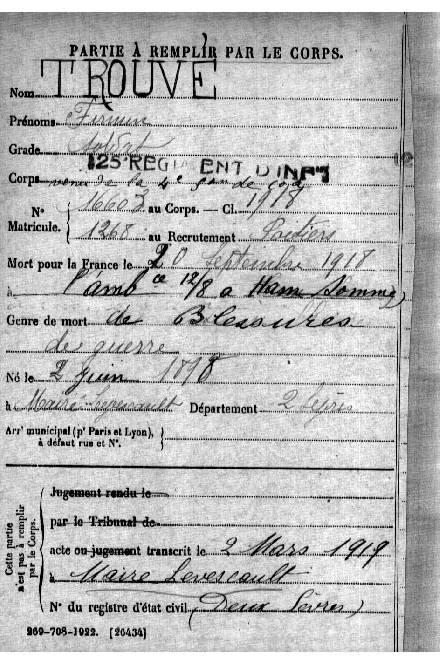 PARTIE À REMPLIR PAR LE CORPS.
Nom TROUVÉ
Prénoms Firmin
Grade Soldat
125 REGIMENT D'INF
Corps venu de la 4e
N° Matricule. 16603 au Corps. — Cl. 1918
1268 au Recrutement Poitiers
Mort pour la France le 20 Septembre 1918
à l'ambce 12/8 a Ham (Somme)
Genre de mort de Blessures
de guerre
Né le 2 juin 1898
à Mairé-Levescault Département 2 Sèvres
Arrt municipal (pr Paris et Lyon),
à défaut rue et N°.
Cette partie n'est pas à remplir par le Corps.
Jugement rendu le
par le Tribunal de
acte ou jugement transcrit le 2 Mars 1919
à Maire Levescault
N° du registre d'état civil (Deux Sèvres)
269-708-1922. [26434]